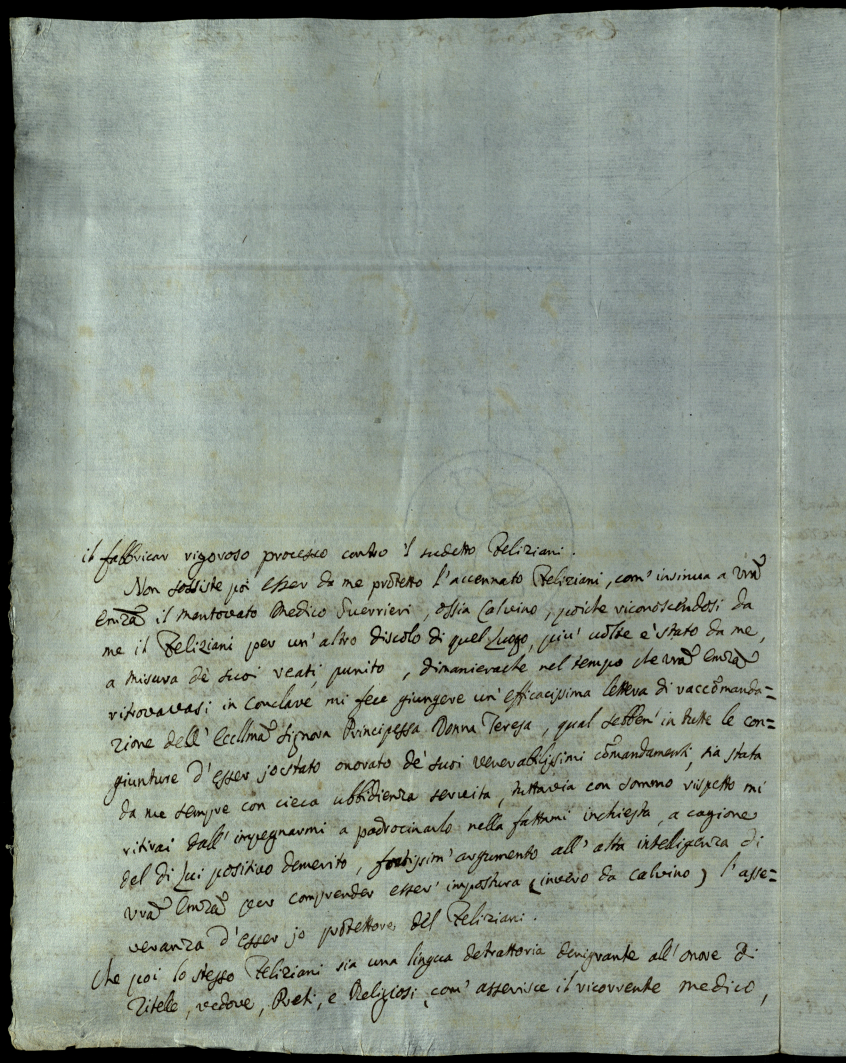 il fabbricar rigoroso processo contro il sudetto Feliziani.
Non sossiste poi esser da me protetto l'accennato Feliziani, com' insinua a Vrã
Emzã il mentovato Medico Guerrieri, ossia Calvino, poiche riconoscendosi da
me il Feliziani per un' altro discolo di quel Luogo, piu' volte e' stato da me,
a misura de suoi reati, punito, dimanierache nel tempo che Vrã Emzã
ritrovavasi in Conclave mi fece giungere un' efficacissima lettera di raccõmanda=
zione dell' Eccllmã Signora Principessa Donna Teresa, qual sebben' in tutte le con=
giunture d'esser jo stato onorato de' suoi venerabilissimi cõmandamenti, sia stata
da me sempre con cieca ubbidienza servita, tuttavia con sommo rispetto mi
ritirai dall' impegnarmi a padrocinarlo nella fattami inchiesta, a cagione
del di Lui positivo demerito, fortissim' argumento all' alta intelligenza di
Vrã Emzã per comprender esser' impostura (invero da Calvino) l'asse=
veranza d'esser jo protettore del Feliziani.
Che poi lo stesso Feliziani sia una lingua detrattoria denigrante all' onore di
Zitelle, vedove, Preti, e Religiosi, com' asserisce il ricorrente medico,